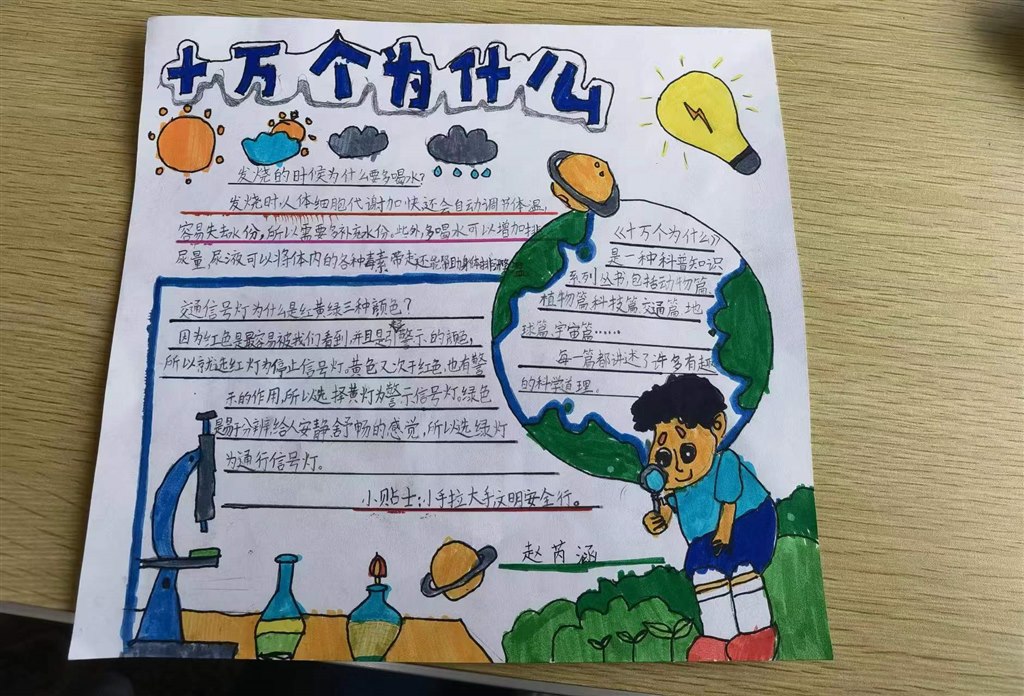 十万个为什么
发烧的时候为什么要多喝水?
发烧时,人体细胞代谢加快还会自动调节体温,
容易失去水份,所以需要多补充水份。此外,多喝水可以增加排
尿量,尿液可以将体内的各种毒素带走还能帮助身体
交通信号灯为什么是红黄绿三种颜色?
因为红色是最容易被我们看到,并且是警示的颜色,
所以就选红灯为停止信号灯。黄色又次于红色,也有警
示的作用,所以选择黄灯为警示信号灯。绿色
是易于分辨,给人安静舒畅的感觉,所以选绿灯
为通行信号灯。
小贴士:小手拉大手文明安全行。
《十万个为什么》
是一种科普知识
系列丛书,包括动物篇、
植物篇、科技篇、交通篇、地
球篇、宇宙篇……
每一篇都讲述了许多有趣
的科学道理。
赵芮涵